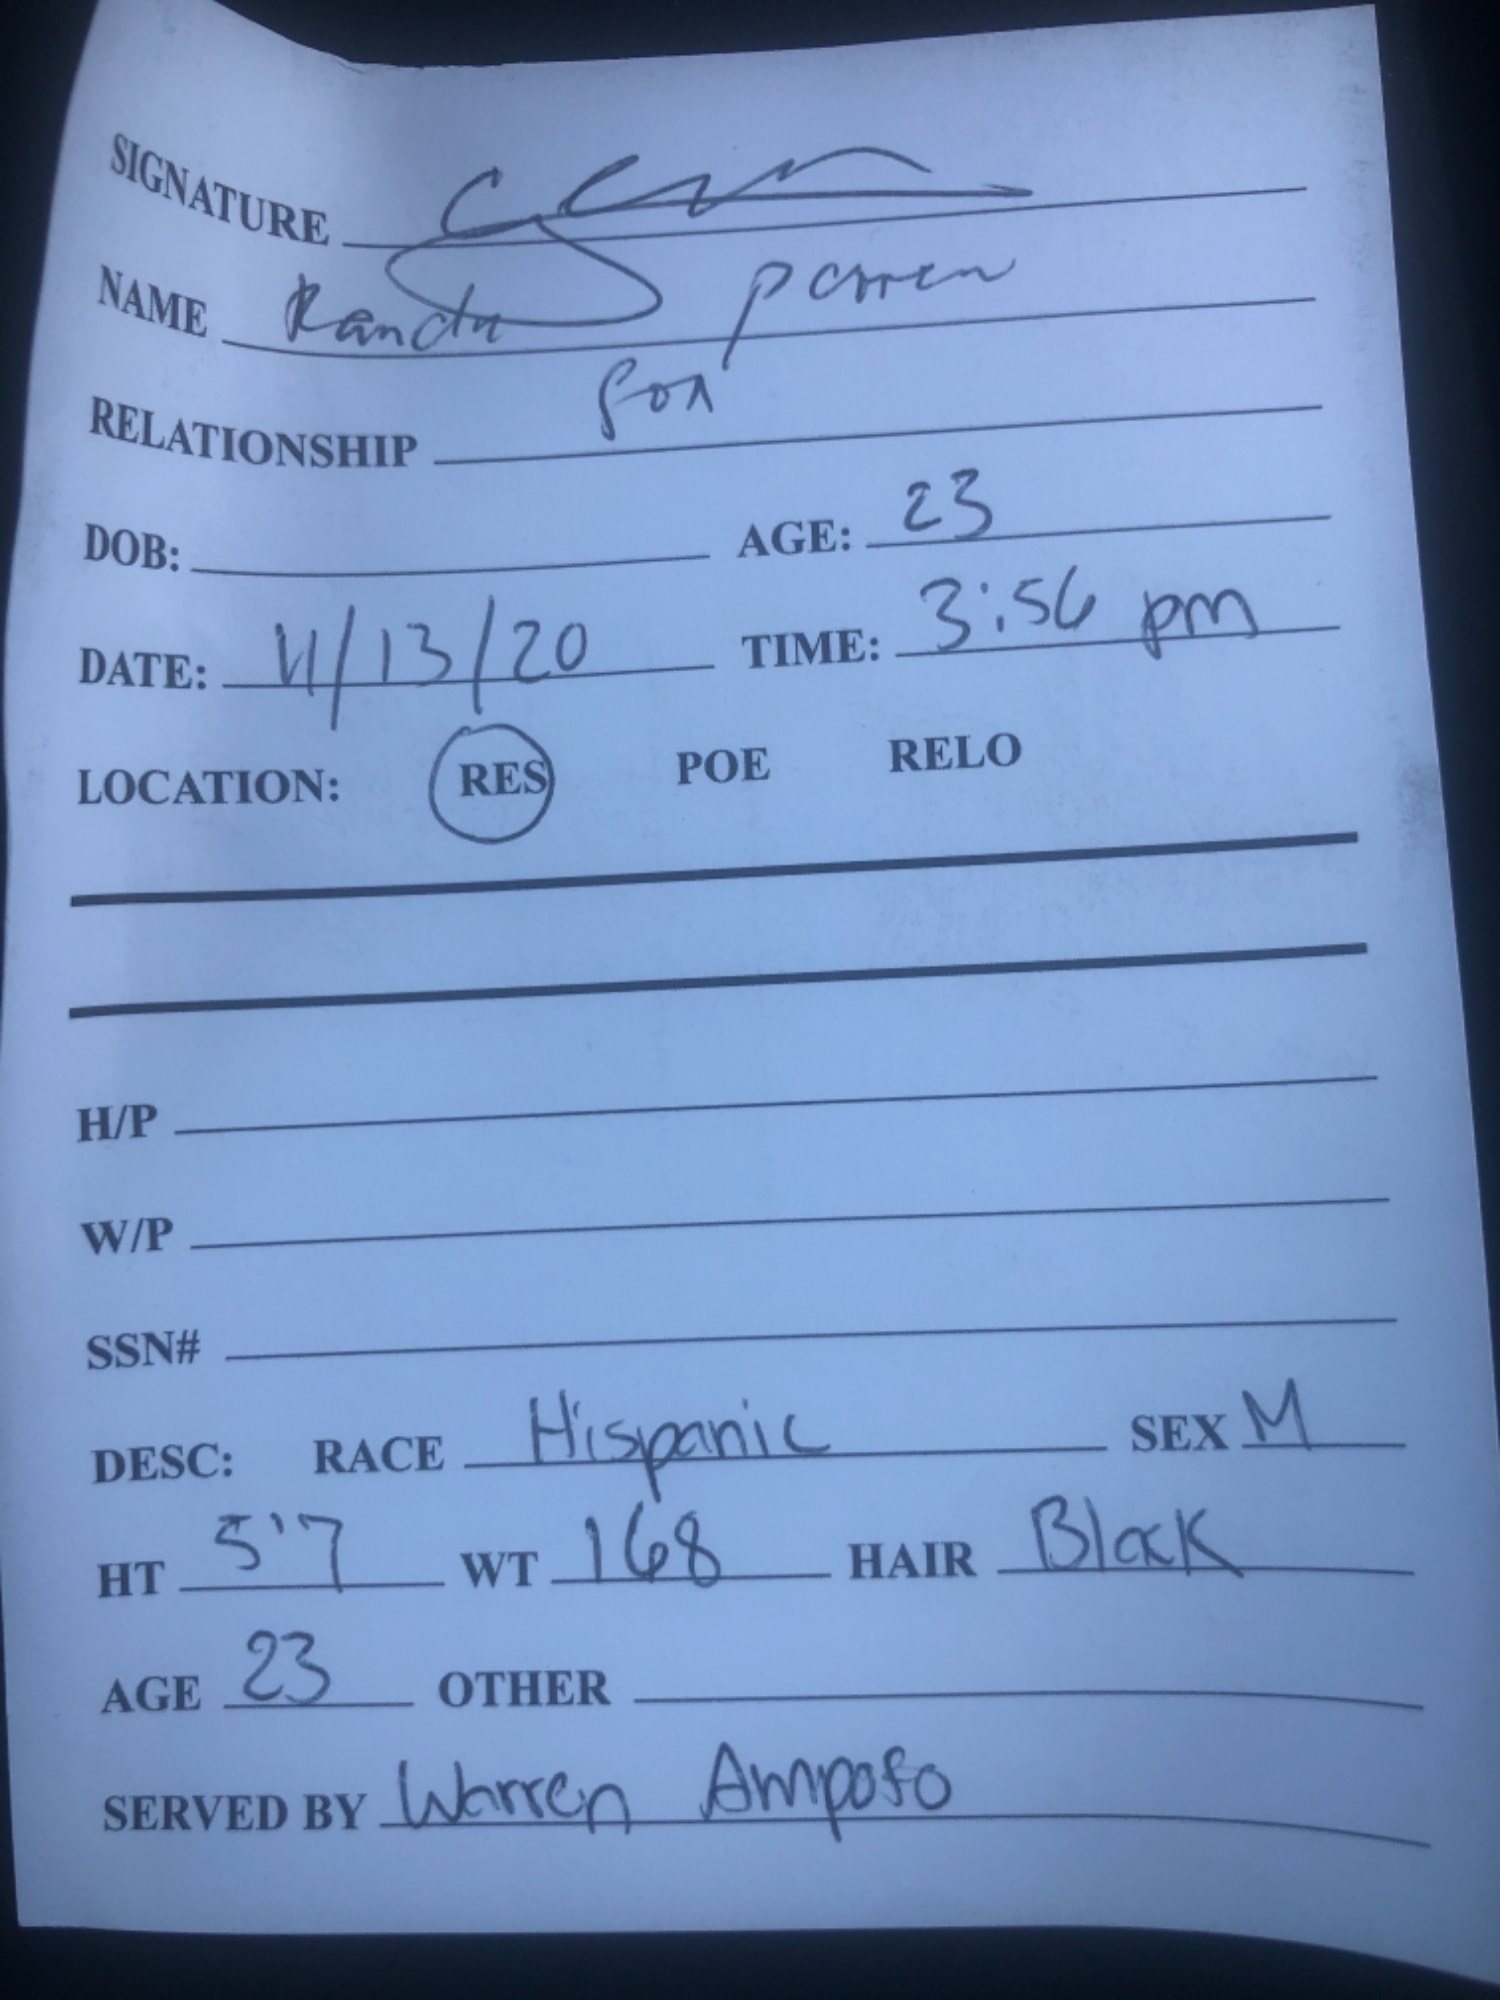 SIGNATURE
NAME
RELATIONSHIP Son
DOB: AGE: 23
DATE: 11/13/20 TIME: 3:56 pm
LOCATION: RES POE RELO
H/P
W/P
SSN#
DESC: RACE Hispanic SEX M
HT 5'7 WT 168 HAIR Black
AGE 23 OTHER
SERVED BY Warren Ampofo